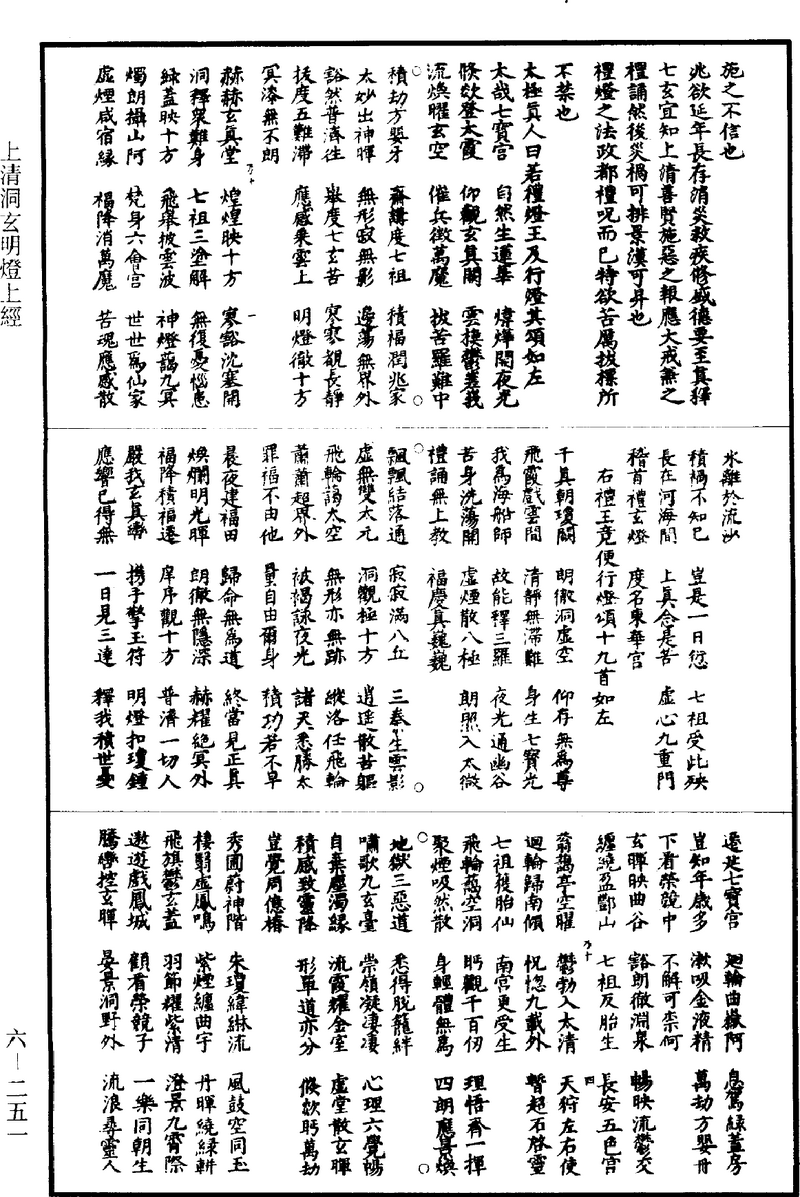 施之不信也
兆欲延年長存消災救疾修盛德要至真釋
七玄宜知上清善賢施惡之報應大戒無之
檀誦然後災禍可排景漢可昇也
禮燈之法政都禮呪而已特欲苦厲拔標所
不禁也
太極真人曰若禮燈王及行燈其頌如左
太哉七寶宮 自然生蓮華 煒燁開夜光
倏欻登太霞 仰觀玄真闕 雲樓鬱嵳峩
流煥曜玄空 催兵徵萬魔 拔苦羅難中
積劫方嬰牙 齋講度七祖 積福潤兆家
太妙出神暉 無形寂無影 邈蕩無界外
豁然普濟往 舉度七玄苦 寥寥覩長靜
拔度五難滯 應感乘雲上 明燈徹十方
冥漆無不朗
赫赫玄真堂 煌煌映十方 寥豁沈塞開
洞釋眾難身 七祖三塗解 無復憂惱患
綠蓋映十方 飛舉披雲波 神燈藹九冥
燭朗攝山阿 梵身六會宮 世世為仙家
虛煙咸宿緣 福降消萬魔 苦魂應感散
氷離於流沙
積禍不知已 豈是一日愆 七祖受此殃
長在河海間 上真念是苦 虛心九重門
稽首禮玄燈 度名東華宮
右禮王竟便行燈頌十九首如左
千真朝瓊闕 朗徹洞虛空 仰存無為尊
飛霞戲雲間 清靜無滯難 身生七寶光
我為海船師 故能釋三羅 夜光通幽谷
苦身洗蕩開 虛煙散八極 朗照入太微
禮誦無上教 福慶真巍巍
飄飄結落通 寂寂滿八丘 三奉生雲影
虛無雙太元 洞觀極十方 逍遥散苦軀
飛輪藹太空 無形亦無跡 縱洛任飛輪
蕭蕭超界外 祗褐詠夜光 諸天悉勝太
罪福不由他 量自由爾身 積功若不早
晨夜建福田 歸命無為道 終當見正真
煥爛明光暉 朗徹無隱深 赫耀絕冥外
福降積福遷 庠序觀十方 普濟一切人
嚴我玄真 攜手擎玉符 明燈扣瓊鐘
應響已得無 一日見三達 釋我積世憂
還是七寶宮 迴輪曲嶽阿 息駕綠蓋房
豈知年歲多 漱吸金液精 萬劫方嬰丹
下看榮競中 不解可柰何
玄暉映曲谷 豁朗徹淵泉 暢映流鬱交
纏繞盈酆山 七祖反胎生 長安五色宮
蓊藹亭空曜 鬱勃入太清 天狩左右使
迴輪歸南傾 怳惚九載外 暫超石啓靈
七祖獲胎仙 南宮更受生
飛輪藹空洞 眄觀千百仞 理悟齊一揮
聚煙吸然散 身輕體無為 四朗應長煥
地獄三惡道 悉得脫籠絆
嘯歌九玄臺 崇嶺凝淒淒 心理六覺暢
自棄塵濁緣 流霞耀金室 虛堂散玄暉
積感致靈降 形單道亦分 倏欻眄萬劫
豈覺周億椿
秀圃蔚神階 朱瓊緯綝流 風鼓空同玉
棲翳虛鳳鳴 紫煙纏曲宇 丹暉繞綠軿
飛旗鬱玄蓋 羽節耀紫清 澄景九霄際
遨遊戲鳳城 顧看榮競子 一樂同朝生
騰轡控玄暉 晏景洞野外 流浪尋靈人
上清洞玄明燈上經
六—二五一